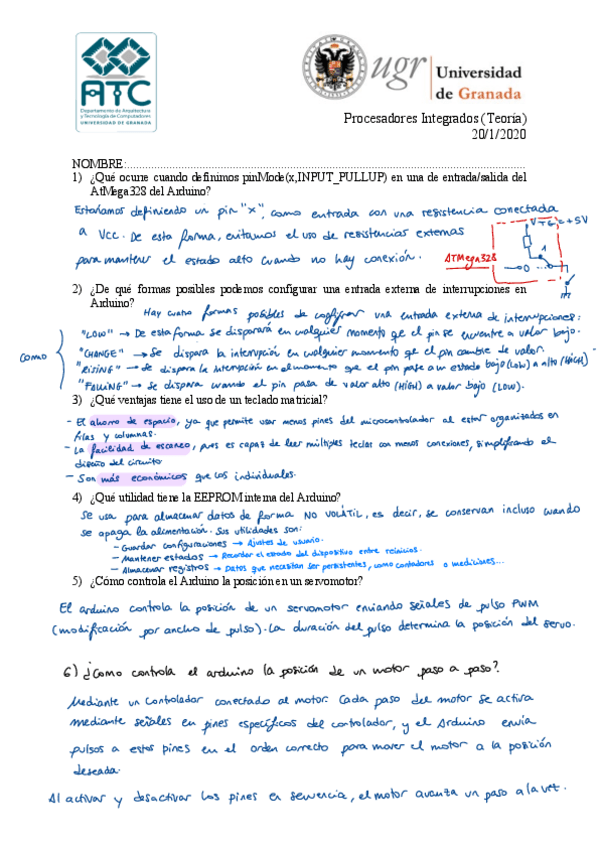 ATC
Departamento de Arquitectura
y Tecnología de Computadores
UNIVERSIDAD DE GRANADA
ugr
Universidad
de Granada
Procesadores Integrados (Teoría)
20/1/2020
NOMBRE:
1) ¿Qué ocurre cuando definimos pinMode(x,INPUT_PULLUP) en una de entrada/salida del
AtMega328 del Arduino?
Estaríamos definiendo un pin "x", como entrada con una resistencia conectada
a Vcc. De esta forma, evitamos el uso de resistencias externas
para mantener el estado alto cuando no hay conexión.
VTG = +5V
1
0
ATMega328
2) ¿De qué formas posibles podemos configurar una entrada externa de interrupciones en
Arduino?
Hay cuatro formas posibles de configurar una entrada externa de interrupciones:
como
"LOW" → De esta forma se disparará en cualquier momento qe el pin se encuentre a valor bajo.
"CHANGE" → Se dispara la interrupción en cualquier momento qe el pin cambie de valor.
"RISING" → Se dispara la interrupción en el momento que el pin pase a un estado bajo (LOW) a alto (HIGH)
"FALLING" → Se dispara cuando el pin pasa de valor alto (HIGH) a valor bajo (LOW).
3) ¿Qué ventajas tiene el uso de un teclado matricial?
- El ahorro de espacio, ya que permite usar menos pines del microcontrolador al estar organizados en
filas y columnas.
- La facilidad de escaneo, pues es capaz de leer múltiples teclas con menos conexiones, simplificando el
diseño del circuito
- Son más económicos que los individuales.
4) ¿Qué utilidad tiene la EEPROM interna del Arduino?
Se usa para almacenar datos de forma NO VOLÁTIL, es decir, se conservan incluso cuando
se apaga la alimentación. Sus utilidades son:
- Guardar configuraciones → Ajustes de usuario.
- Mantener estados → Recordar el estado del dispositivo entre reinicios.
- Almacenar registros → Datos que necesitan ser persistentes, como contadores o mediciones...
5) ¿Cómo controla el Arduino la posición en un servomotor?
El arduino controla la posición de un servomotor enviando señales de pulso PWM
(modificación por ancho de pulso). La duración del pulso determina la posición del servo.
6) ¿Como controla el arduino la posición de un motor paso a paso?
Mediante un controlador conectado al motor. Cada paso del motor se activa
mediante señales en pines específicos del controlador, y el Arduino envía
pulsos a estos pines en el orden correcto para mover el motor a la posición
deseada.
Al activar y desactivar los pines en secuencia, el motor avanza un paso a la vez.